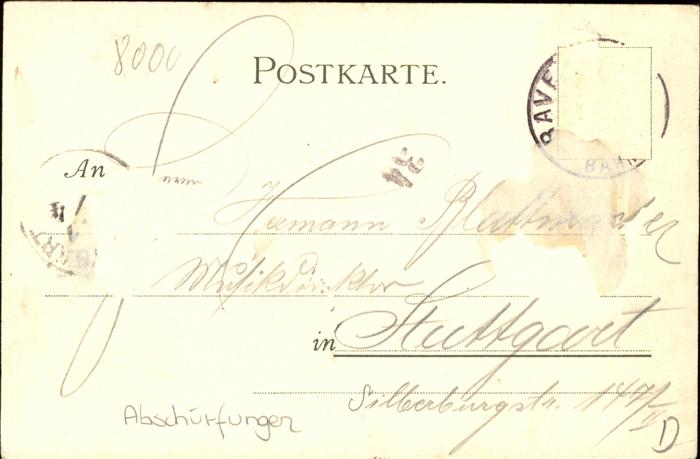 8000
POSTKARTE.
RAVE
BAH
34
An
Hermann Blattmacher
Musikdirektor
in Stuttgart
Silberburgstr. 147/II
Abschürfungen
D